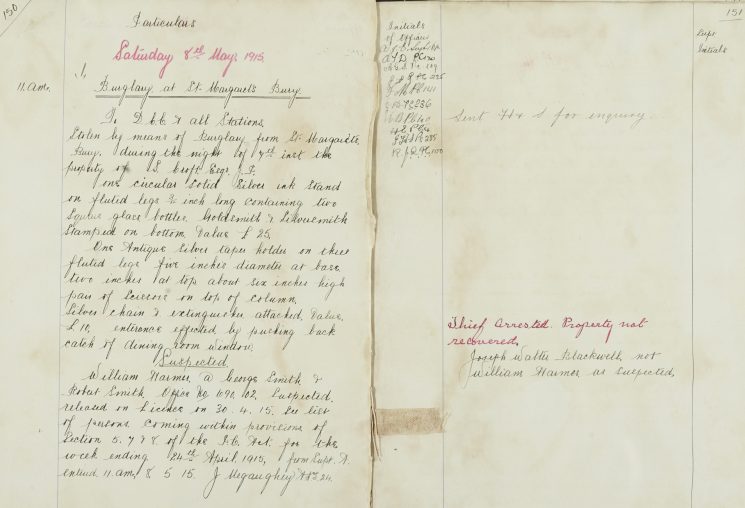 150
Particulars
Saturday 8th May, 1915.
11. am.
1,
Burglary at St. Margarets Bury
To D & C & all Stations.
Stolen by means of Burglary from St. Margarets
Bury, during the night of 7th inst the
property of S. Croft Esqr. J.P.
one circular solid Silver ink stand
on fluted legs inch long containing two
Square glass bottles. Goldsmith & Silversmith
stamped on bottom, Value £ 25.
One Antique Silver taper holder on three
fluted legs five inches diameter at base
two inches at top about six inches high
pair of Scissors on top of column.
Silver chain & extinguisher attached, Value.
£ 10, enterence effected by pushing back
catch of dining room window.
Suspected
William Harmer @ George Smith &
Robert Smith Office No 1090. 02, Suspected.
released on Licence on 30. 4. 15. See list
of persons coming within provisions of
Section 5. 7 & 8. of the P.C. Act. for the
week ending 24th April 1915, from Supt. A.
entered 11. am, 8 5 15. J Megaughey
151
Initials
of Officers
Supt
Initials
Sent H & S for enquiry.
Thief Arrested. Property not
recovered,
Joseph Walter Blackwell, not
William Harmer as suspected